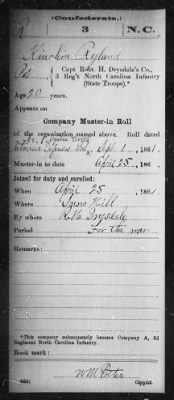 (Confederate.)
R 3 N.C.
Ryland
Pvt Capt Robt. H. Drysdale's Co.,
3 Reg't North Carolina Infantry
(State Troops).*
Age 20 years.
Appears on
Company Muster-in Roll
of the organization named above. Roll dated
Sept 1, 1861.
Muster-in to date April 25, 186
Joined for duty and enrolled:
When April 25, 1861.
Where Snow Hill
By whom R. H. Drysdale
Period For the war
Remarks:
*This company subsequently became Company A, 3d
Regiment North Carolina Infantry.
Book mark:
(656) Copyist.